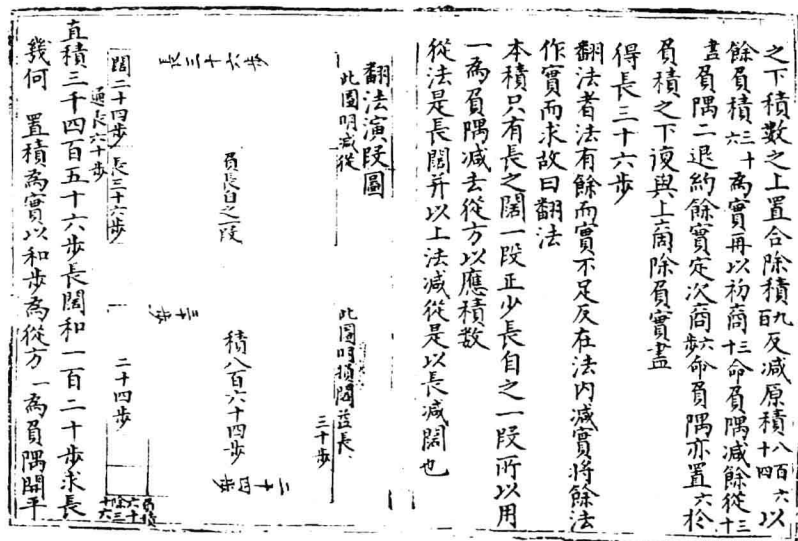 之下積數之上置合除積九百反減原積八百六十四以
餘負積三十六為實再以初商三十命負隅減餘從三十
盡負隅二退約餘實定次商六步命負隅亦置六於
負積之下復與上商除負實盡
得長三十六步
翻法者法有餘而實不足反在法内減實將餘法
作實而求故曰翻法
本積只有長之闊一段正少長自之一段所以用
一為負隅減去從方以應積數
從法是長闊并以上法減從是以長減闊也
翻法演段圖
此圖明減從
長三十六步
負長自之一段
闊二十四步
長三十六步
通長六十步
此圖明損闊益長
三十步
三十步
積八百六十四步
二十四步
二十四步
直積三千四百五十六步長闊和一百二十步求長
幾何 置積為實以和步為從方一為負隅開平